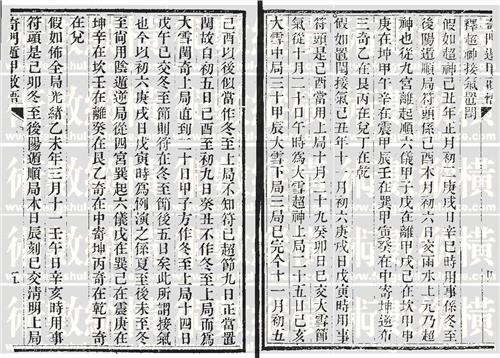 釋超神接氣置閏
假如超神己丑年正月初二庚戌日辛巳時用事係冬至
後陽遁順局符頭係己酉本月初六日交雨水上元乃超
神也從九宮離起順六儀甲子戊在離甲戌己在坎甲申
庚在坤甲午辛在震甲辰壬在巽甲寅癸在中寄坤逆布
三奇乙在艮丙在兌丁在乾
假如置閏接氣己丑年十一月初六庚戌日戊寅時用事
符頭是己酉當用上局十月二十九癸卯日已交大雪節
氣從十月二十日午時為大雪超神上局二十五日己亥
大雪中局三十甲辰大雪下局三局已完今十一月初五
己酉以後似當作冬至上局不知符已超節九日正當置
閏故自初五日己酉至初九癸丑不作冬至上局而為
大雪閏奇上局直到二十日甲子方作冬至上局十四日
戊午已交冬至節則符在節後五日矣此所謂接氣
也今以初六庚戌日戊寅時為例演之係夏至後未至冬
至尚用陰遁逆局從四宮巽起六儀戊在巽己在震庚在
坤辛在坎壬在離癸在艮乙奇在中寄坤丙奇在乾丁奇
在兌
假如佈全局光緒乙未年三月十一壬午日辛亥時用事
符頭是己卯冬至後陽遁順局本日辰刻已交清明上局
奇門遁甲啟悟